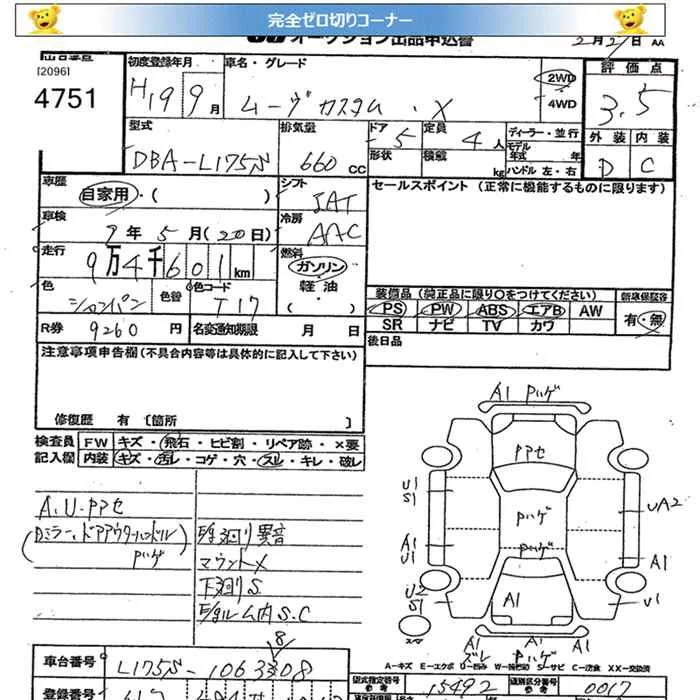 完全ゼロ切りコーナー
オークション出品申込書
2月21日 AA
出品番号
[2096]
4751
初度登録年月
H19 9月
車名・グレード
ムーヴカスタム・X
2WD
4WD
評価点
3.5
外装 内装
D C
型式
DBA-L175S
排気量
660 CC
ドア 5
形状
定員 4人
積載 kg
ディーラー・並行
モデル年式 年
ハンドル 左・右
車歴
自家用・( )
シフト
IAT
セールスポイント (正常に機能するものに限ります)
車検
9年5月(20日)
冷房
AAC
走行
9万4千601km
燃料
ガソリン
軽油
( )
色
シャンパン
色替
色コード
T17
装備品(純正品に限り○をつけてください)
新車保証書
PS PW ABS エアB AW
SR ナビ TV カワ
有・無
R券 9260円
名変通知期限 月 日
後日品
注意事項申告欄(不具合内容等は具体的に記入して下さい)
修復歴 有 [箇所 ]
検査員記入欄
FW キズ・飛石・ヒビ割・リペア跡・×要
内装 キズ・汚レ・コゲ・穴・スレ・キレ・破レ
A.U.PPセ
(Dミラー、ドアアウターハンドル)
Pハゲ
足廻り異音
マウント×
下廻りS
S.C
A1 Pハゲ
PPセ
Pハゲ
Pハゲ
U1
S1
A1
U1
U2
S1
UA2
A1
U1
A1
A1 A1 A1
ズレ Pハゲ
スペア
A-キズ E-エクボ U-凹み W-補修跡 S-サビ C-腐食 XX-交換済
車台番号
L175S-1063308
18
型式指定番号
参考
15492
類別区分番号
参考
0017
登録番号